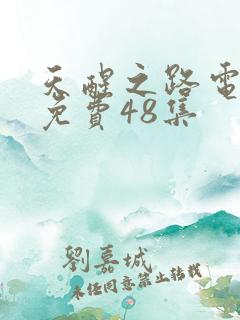 天醒之路電
免費48集
劉嘉城
未经同意禁止转载